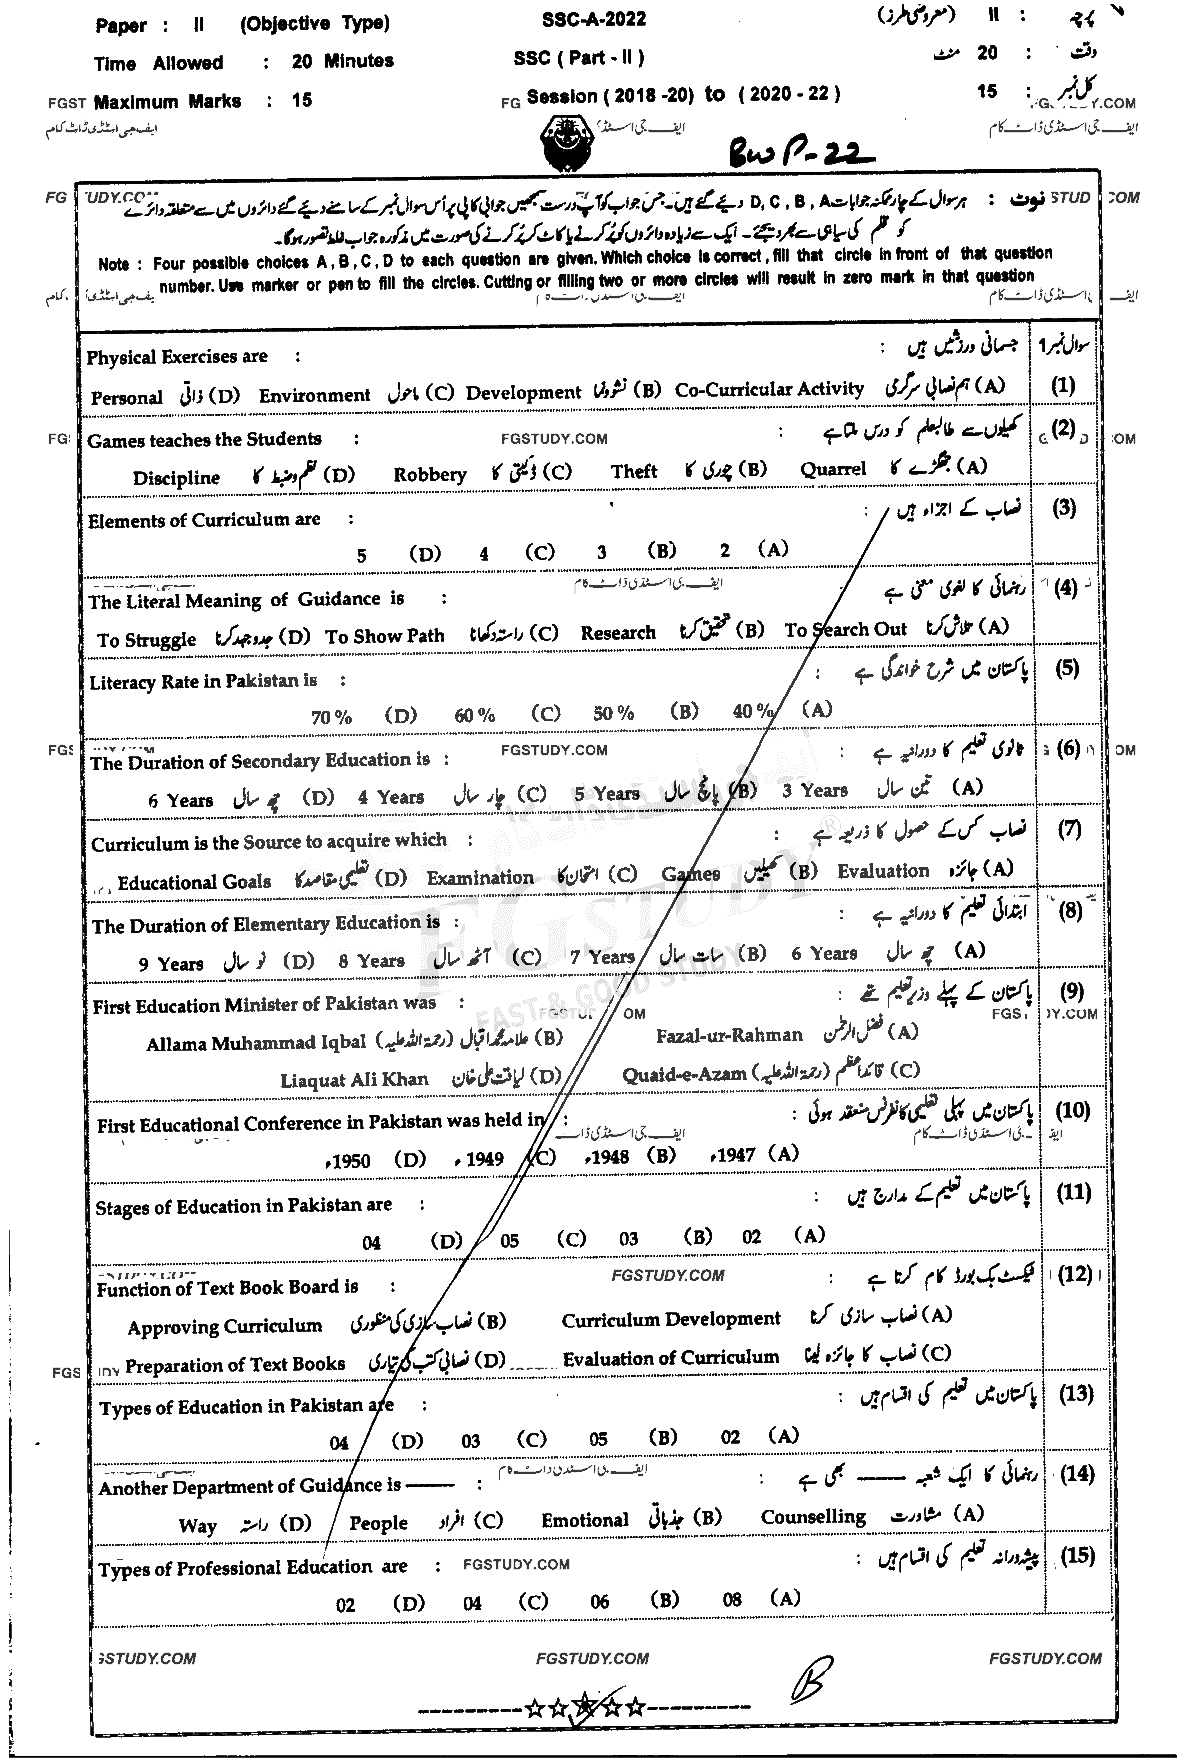 Paper : II (Objective Type) SSC-A-2022 پرچہ : II (معروضی طرز)
Time Allowed : 20 Minutes SSC ( Part - II ) وقت : 20 منٹ
FGST Maximum Marks : 15 FG Session ( 2018 -20) to ( 2020 - 22 ) کل نمبر : 15
FGSTUDY.COM
ایف جی اسٹڈی ڈاٹ کام
BWP-22
نوٹ : ہر سوال کے چار ممکنہ جوابات D, C, B, A دیئے گئے ہیں۔ جس جواب کو آپ درست سمجھیں جوابی کاپی پر اُس سوال نمبر کے سامنے دیئے گئے دائروں میں سے متعلقہ دائرے
کو قلم کی سیاہی سے بھر دیجئے۔ ایک سے زیادہ دائروں کو پُر کرنے یا کاٹ کر پُر کرنے کی صورت میں مذکورہ جواب غلط تصور ہوگا۔
Note : Four possible choices A , B , C , D to each question are given. Which choice is correct , fill that circle in front of that question
number. Use marker or pen to fill the circles. Cutting or filling two or more circles will result in zero mark in that question
سوال نمبر 1
Physical Exercises are : جسمانی ورزشیں ہیں :
(1) (A) ہم نصابی سرگرمی Co-Curricular Activity (B) نشوونما Development (C) ماحول Environment (D) ذاتی Personal
Games teaches the Students : FGSTUDY.COM کھیلوں سے طالبعلم کو درس ملتا ہے : (2)
(A) جھگڑے کا Quarrel (B) چوری کا Theft (C) ڈکیتی کا Robbery (D) نظم و ضبط کا Discipline
Elements of Curriculum are : نصاب کے اجزاء ہیں : (3)
(A) 2 (B) 3 (C) 4 (D) 5
ایف جی اسٹڈی ڈاٹ کام
The Literal Meaning of Guidance is : رہنمائی کا لغوی معنی ہے (4)
(A) تلاش کرنا To Search Out (B) تحقیق کرنا Research (C) راستہ دکھانا To Show Path (D) جدوجہد کرنا To Struggle
Literacy Rate in Pakistan is : پاکستان میں شرح خواندگی ہے : (5)
(A) 40 % (B) 50 % (C) 60 % (D) 70 %
FGSTUDY.COM
The Duration of Secondary Education is : ثانوی تعلیم کا دورانیہ ہے : (6)
(A) تین سال 3 Years (B) پانچ سال 5 Years (C) چار سال 4 Years (D) چھ سال 6 Years
Curriculum is the Source to acquire which : نصاب کس کے حصول کا ذریعہ ہے : (7)
(A) جائزہ Evaluation (B) کھیلیں Games (C) امتحان کا Examination (D) تعلیمی مقاصد کا Educational Goals
The Duration of Elementary Education is : ابتدائی تعلیم کا دورانیہ ہے : (8)
(A) چھ سال 6 Years (B) سات سال 7 Years (C) آٹھ سال 8 Years (D) نو سال 9 Years
FGSTUDY®
FAST & GOOD STUDY
First Education Minister of Pakistan was : پاکستان کے پہلے وزیر تعلیم تھے : (9)
(A) فضل الرحمٰن Fazal-ur-Rahman (B) علامہ محمد اقبال (رحمۃ اللہ علیہ) Allama Muhammad Iqbal
(C) قائداعظم (رحمۃ اللہ علیہ) Quaid-e-Azam (D) لیاقت علی خان Liaquat Ali Khan
First Educational Conference in Pakistan was held in : پاکستان میں پہلی تعلیمی کانفرنس منعقد ہوئی : (10)
(A) 1947ء (B) 1948ء (C) 1949ء (D) 1950ء
Stages of Education in Pakistan are : پاکستان میں تعلیم کے مدارج ہیں : (11)
(A) 02 (B) 03 (C) 05 (D) 04
FGSTUDY.COM
Function of Text Book Board is : ٹیکسٹ بک بورڈ کام کرتا ہے : (12)
(A) نصاب سازی کرنا Curriculum Development (B) نصاب سازی کی منظوری Approving Curriculum
(C) نصاب کا جائزہ لینا Evaluation of Curriculum (D) نصابی کتب کی تیاری Preparation of Text Books
Types of Education in Pakistan are : پاکستان میں تعلیم کی اقسام ہیں : (13)
(A) 02 (B) 05 (C) 03 (D) 04
ایف جی اسٹڈی ڈاٹ کام
Another Department of Guidance is —— : رہنمائی کا ایک شعبہ —— بھی ہے : (14)
(A) مشاورت Counselling (B) جذباتی Emotional (C) افراد People (D) راستہ Way
Types of Professional Education are : FGSTUDY.COM پیشہ ورانہ تعلیم کی اقسام ہیں : (15)
(A) 08 (B) 06 (C) 04 (D) 02
FGSTUDY.COM FGSTUDY.COM
B